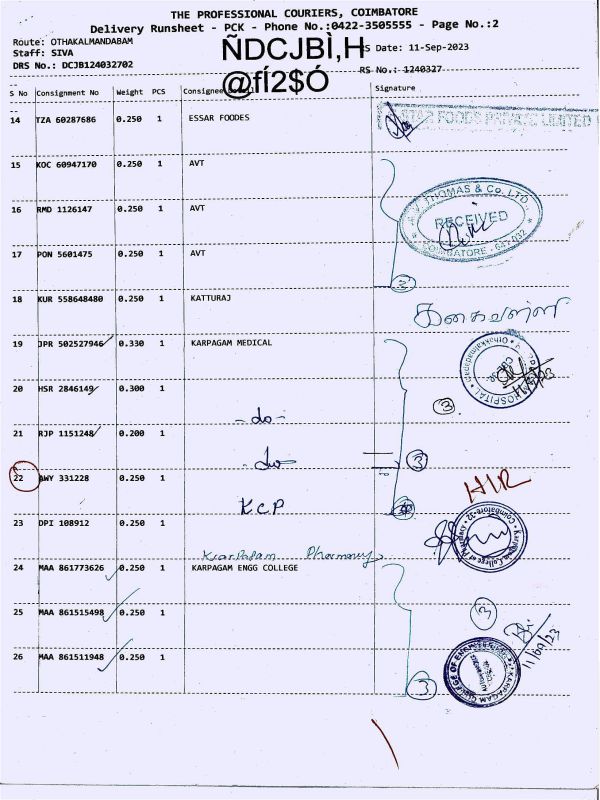 THE PROFESSIONAL COURIERS, COIMBATORE
Delivery Runsheet - PCK - Phone No.:0422-3505555 - Page No.:2
Route: OTHAKALMANDABAM
ÑDCJBÌ,H
RS Date: 11-Sep-2023
Staff: SIVA
DRS No.: DCJB124032702
@fÍ2$Ó
RS No.: 1240327
S No Consignment No Weight PCS Consignee Signature
14 TZA 60287686 0.250 1 ESSAR FOODES
STAR FOODS PRIVATE LIMITED
15 KOC 60947170 0.250 1 AVT
16 RMD 1126147 0.250 1 AVT
THOMAS & Co. LTD.
RECEIVED
COIMBATORE - 641 032
17 PON 5601475 0.250 1 AVT
18 KUR 558648480 0.250 1 KATTURAJ
19 JPR 502527946 0.330 1 KARPAGAM MEDICAL
HOSPITAL Othakkalmandapam
11/9/23
20 HSR 2846149 0.300 1
3
- do -
21 RJP 1151248 0.200 1
- do -
3
22 BWY 331228 0.250 1
HIR
KCP
23 DPI 108912 0.250 1
Karpagam College of Pharmacy Coimbatore-32
Karpagam Pharmacy
24 MAA 861773626 0.250 1 KARPAGAM ENGG COLLEGE
25 MAA 861515498 0.250 1
3
11/09/23
26 MAA 861511948 0.250 1
3
KARPAGAM COLLEGE OF ENGINEERING